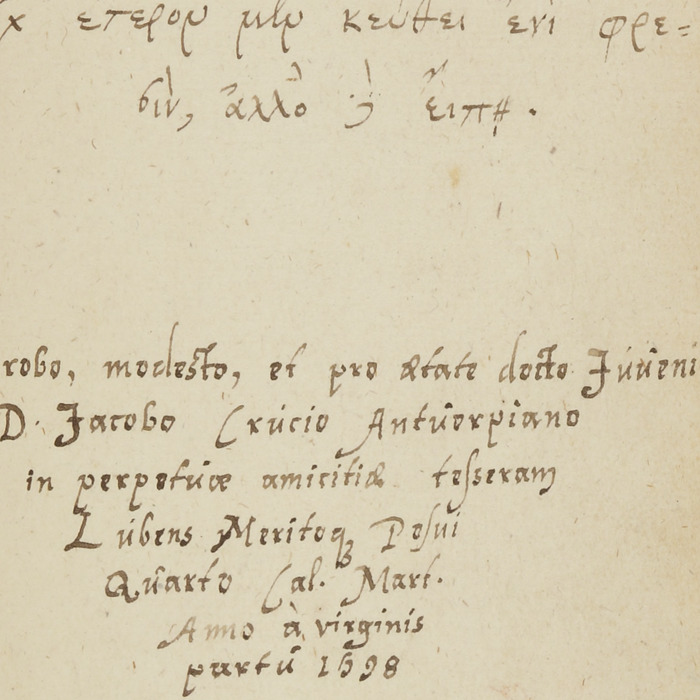 χ ἕτερον μὲν κεύθει ἐνὶ φρε=
σὶν, ἄλλο δὲ εἴπῃ.
robo, modesto, et pro ætate docto Juveni
D. Jacobo Crucio Antverpiano
in perpetuæ amicitiæ tesseram
Lubens Meritoq₃ Posui
Quarto Cal. Mart.
Anno à virginis
partu 1598